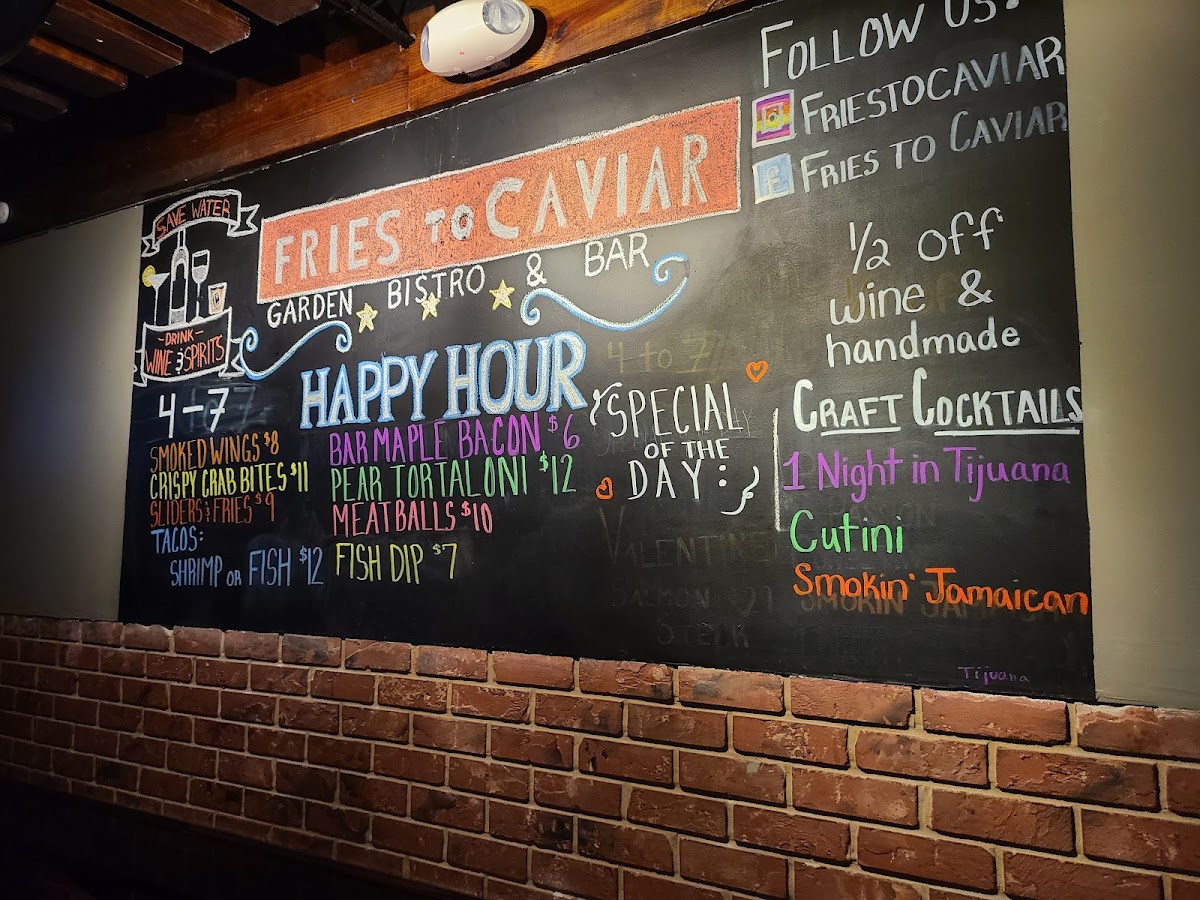 SAVE WATER
-DRINK-
WINE & SPIRITS
FRIES TO CAVIAR
GARDEN BISTRO & BAR
HAPPY HOUR
4-7
SMOKED WINGS $8
CRISPY CRAB BITES $11
SLIDERS & FRIES $9
TACOS:
SHRIMP OR FISH $12
BAR MAPLE BACON $6
PEAR TORTALONI $12
MEATBALLS $10
FISH DIP $7
4 to 7
SPECIAL
OF THE
DAY:
VALENTINE
SALMON
STEAK
FOLLOW US!
FRIESTOCAVIAR
FRIES TO CAVIAR
1/2 off
wine &
handmade
CRAFT COCKTAILS
1 Night in Tijuana
Cutini
Smokin' Jamaican
Tijuana